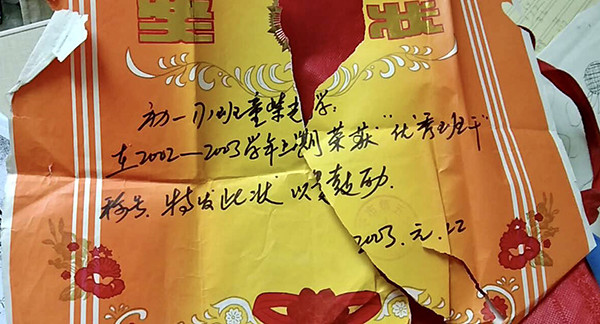 奖状
初一班童学：
在2002—2003学年上期荣获“优秀班干”
称号、特发此状 以资鼓励.
2003.元.12